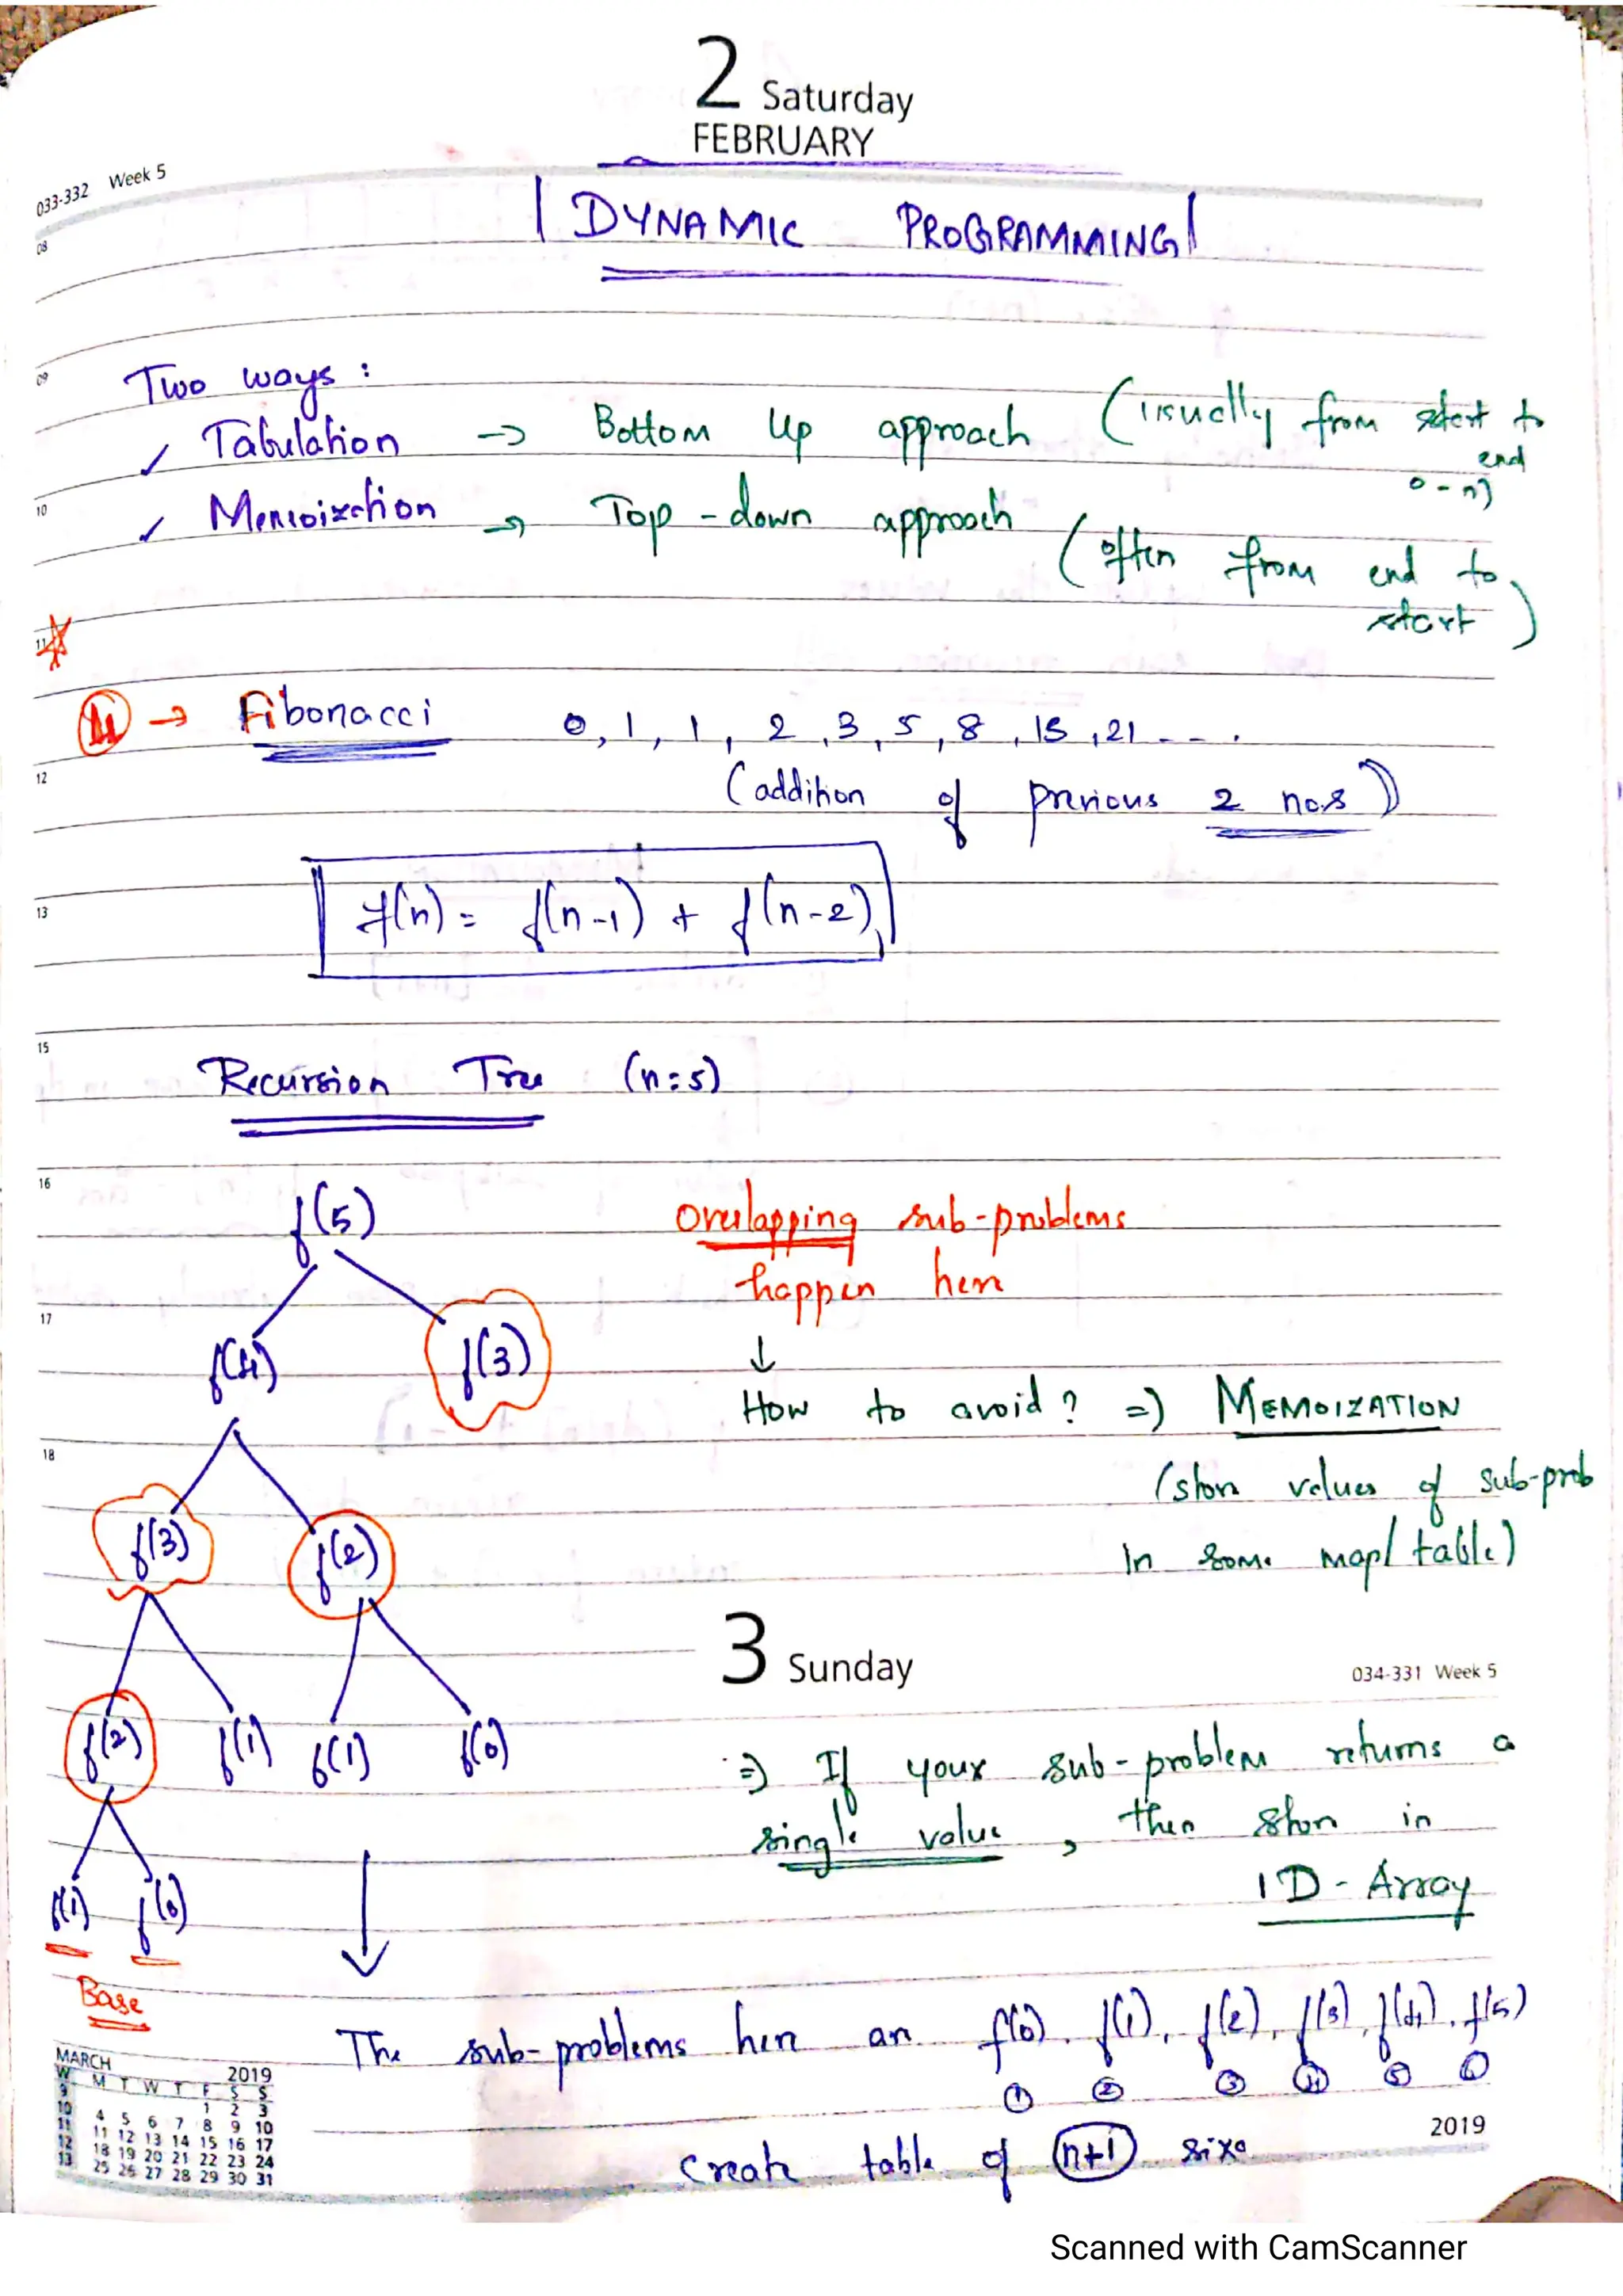 2 Saturday
FEBRUARY
033-332 Week 5
DYNAMIC PROGRAMMING
08
09
Two ways :
✓ Tabulation → Bottom Up approach (usually from start to
end
0 - n)
10
✓ Memoization → Top-down approach (often from end to
start)
11
→ Fibonacci 0, 1, 1, 2, 3, 5, 8, 13, 21 - - - .
12
(addition of previous 2 no.s)
13
f(n) = f(n-1) + f(n-2)
15
Recursion Tree (n=5)
16
f(5)
Overlapping sub-problems
happen here
17
f(4) f(3)
↓
How to avoid? => MEMOIZATION
18
(store values of sub-prob
in some map/table)
f(3) f(2)
3 Sunday
034-331 Week 5
f(2) f(1) f(1) f(0)
=> If your sub-problem returns a
single value, then store in
1D-Array
f(1) f(0)
Base
The sub-problems here are f(0), f(1), f(2), f(3), f(4), f(5)
① ② ③ ④ ⑤ ⑥
create table of (n+1) size
2019
MARCH 2019
W M T W T F S S
9 1 2 3
10 4 5 6 7 8 9 10
11 11 12 13 14 15 16 17
12 18 19 20 21 22 23 24
13 25 26 27 28 29 30 31
Scanned with CamScanner